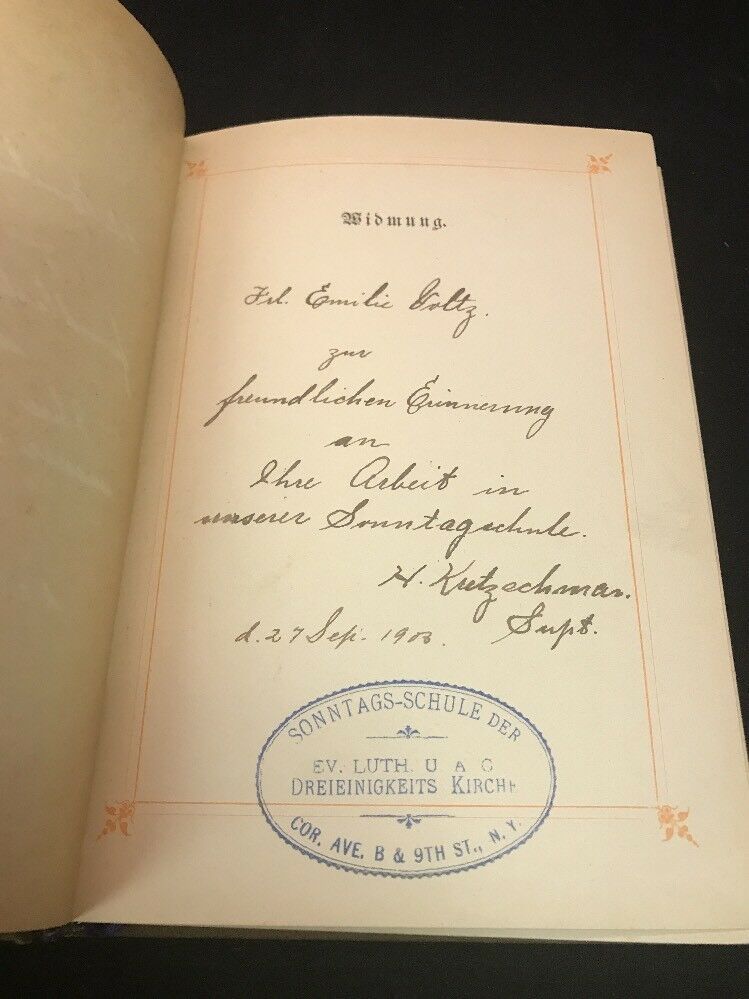 Widmung.
Frl. Emilie Voltz.
zur
freundlichen Erinnerung
an
Ihre Arbeit in
unserer Sonntagschule.
H. Kretzschmar.
Supt.
d. 27 Sep. 1903.
SONNTAGS-SCHULE DER
EV. LUTH. U A C
DREIEINIGKEITS KIRCHE
COR. AVE. B & 9TH ST., N. Y.